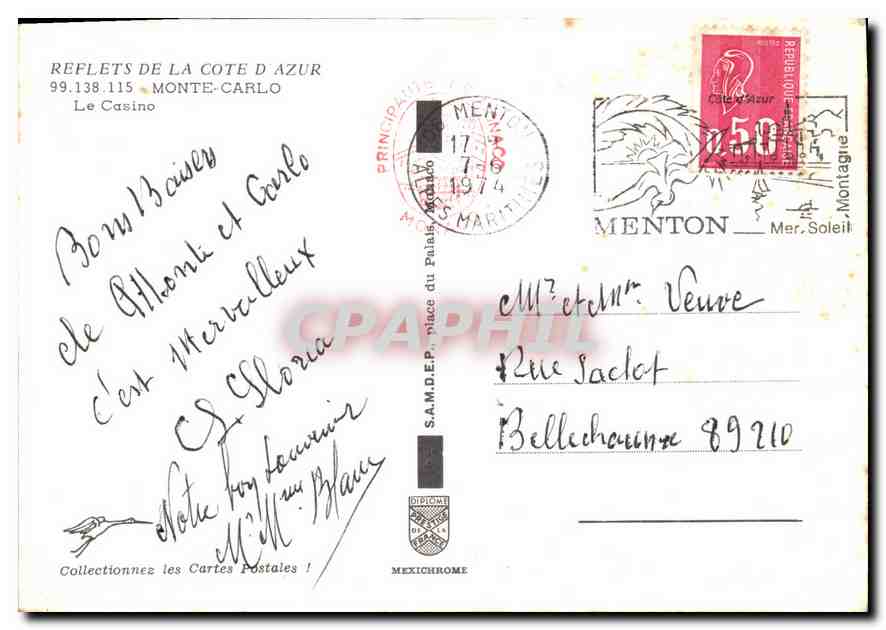 REFLETS DE LA COTE D AZUR
99.138.115 - MONTE-CARLO
Le Casino
Bons Baisers
de Monte et Carlo
c'est Mervalleux
Gloria
Notre bon souvenir
Mr Mme Blanc
Collectionnez les Cartes Postales !
S.A.M.D.E.P., place du Palais, Monaco
DIPLOME
PRESTIGE
DE LA
FRANCE
MEXICHROME
PRINCIPAUTE
MONACO
06 MENTON
17 -
7 - 6
1974
ALPES MARITIMES
POSTES
REPUBLIQUE FRANCAISE
0.50
Côte d'Azur
MENTON
Mer, Soleil, Montagne
Mr et Mme Veuve
Rue
Bellechaume 89210
CPAPHIL